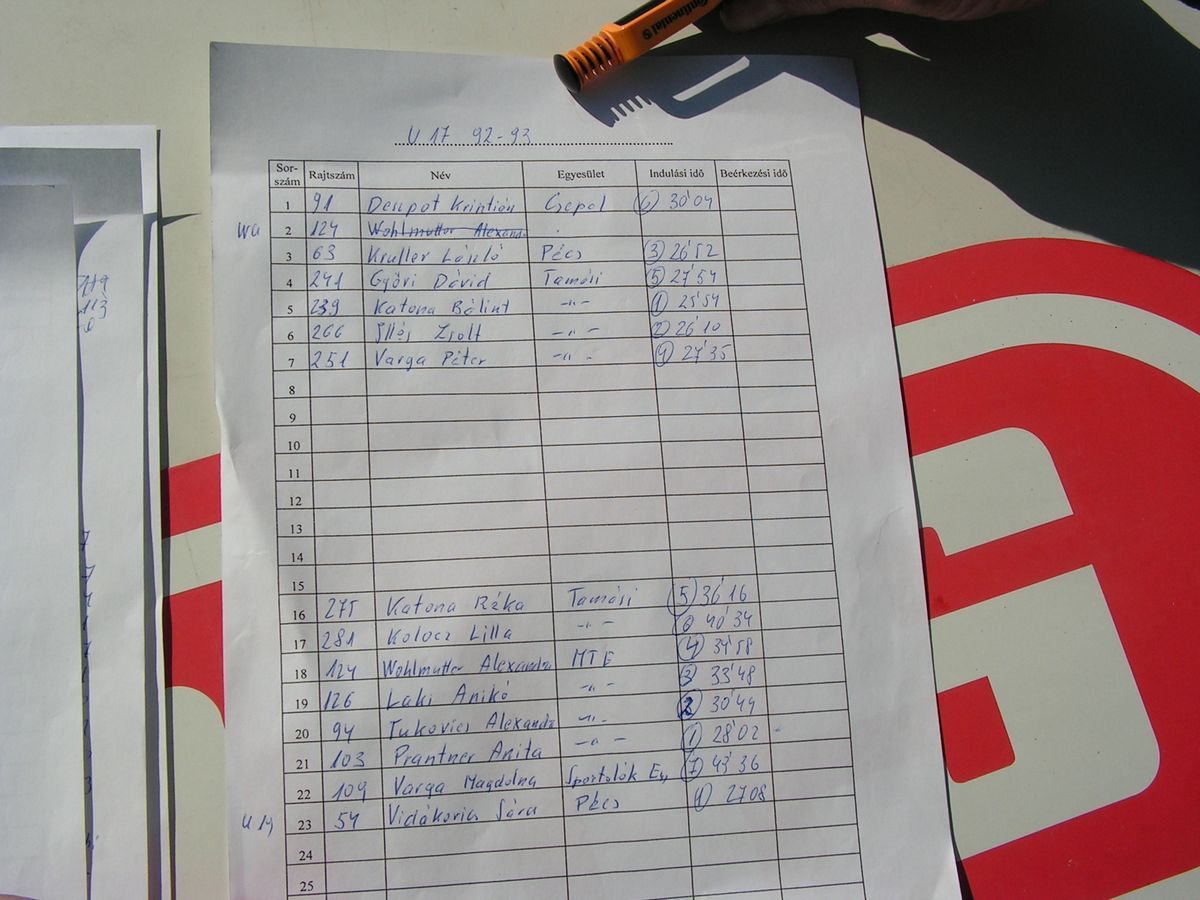 Continental
U 17 92-93
Sor-szám Rajtszám Név Egyesület Indulási idő Beérkezési idő
1 91 Despot Krisztián Csepel 6 30'04
2 124 Wohlmutter Alexandra
3 63 Kruller László Pécs 3 26'52
4 241 Győri Dávid Tamási 5 27'54
5 239 Katona Bálint -"- 1 25'54
6 266 Illés Zsolt -"- 2 26'10
7 251 Varga Péter -"- 4 27'35
8
9
10
11
12
13
14
15
16 275 Katona Réka Tamási 5 36'16
17 281 Kolocz Lilla -"- 6 40'34
18 124 Wohlmutter Alexandra MTE 4 34'58
19 126 Laki Anikó -"- 3 33'48
20 94 Tukovics Alexandra -"- 2 30'49
21 103 Prantner Anita -"- 1 28'02
22 109 Varga Magdolna Sportolók Egy 7 43'36
23 54 Vidákovics Sára Pécs 2708
U 19
24
25